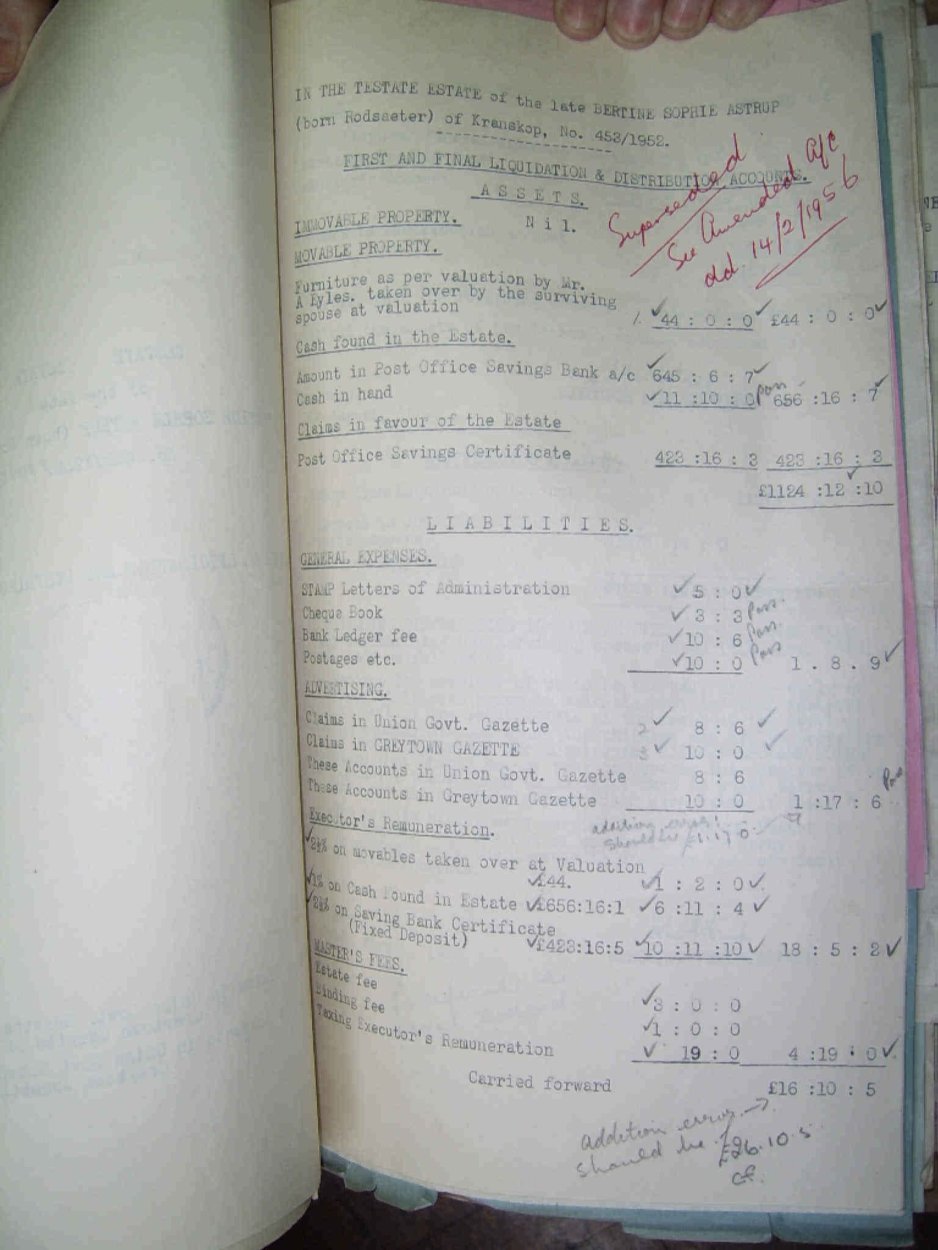 IN THE TESTATE ESTATE of the late BERTINE SOPHIE ASTRUP
(born Rodsaeter) of Kranskop, No. 453/1952.
FIRST AND FINAL LIQUIDATION & DISTRIBUTION ACCOUNTS.
Superseded
See Amended A/c
dd. 14/2/1956
A S S E T S.
IMMOVABLE PROPERTY. N i l.
MOVABLE PROPERTY.
Furniture as per valuation by Mr.
A Eyles. taken over by the surviving
spouse at valuation 44 : 0 : 0 £44 : 0 : 0
Cash found in the Estate.
Amount in Post Office Savings Bank a/c 645 : 6 : 7
Cash in hand 11 :10 : 0 pass 656 :16 : 7
Claims in favour of the Estate
Post Office Savings Certificate 423 :16 : 3 423 :16 : 3
£1124 :12 :10
L I A B I L I T I E S.
GENERAL EXPENSES.
STAMP Letters of Administration 5 : 0
Cheque Book 3 : 3 Pass.
Bank Ledger fee 10 : 6 Pass.
Postages etc. 10 : 0 Pass 1 . 8 . 9
ADVERTISING.
Claims in Union Govt. Gazette 2 8 : 6
Claims in GREYTOWN GAZETTE 3 10 : 0
These Accounts in Union Govt. Gazette 8 : 6
These Accounts in Greytown Gazette 10 : 0 1 :17 : 6 Pass
addition error!
should be £1.17.0
Executor's Remuneration.
2½% on movables taken over at Valuation
£44. 1 : 2 : 0
1% on Cash Found in Estate £656:16:1 6 :11 : 4
2½% on Saving Bank Certificate
(Fixed Deposit) £423:16:5 10 :11 :10 18 : 5 : 2
MASTER'S FEES.
Estate fee 3 : 0 : 0
Binding fee 1 : 0 : 0
Taxing Executor's Remuneration 19 : 0 4 :19 : 0
Carried forward £16 :10 : 5
addition error →
should be £26.10.5
cf.